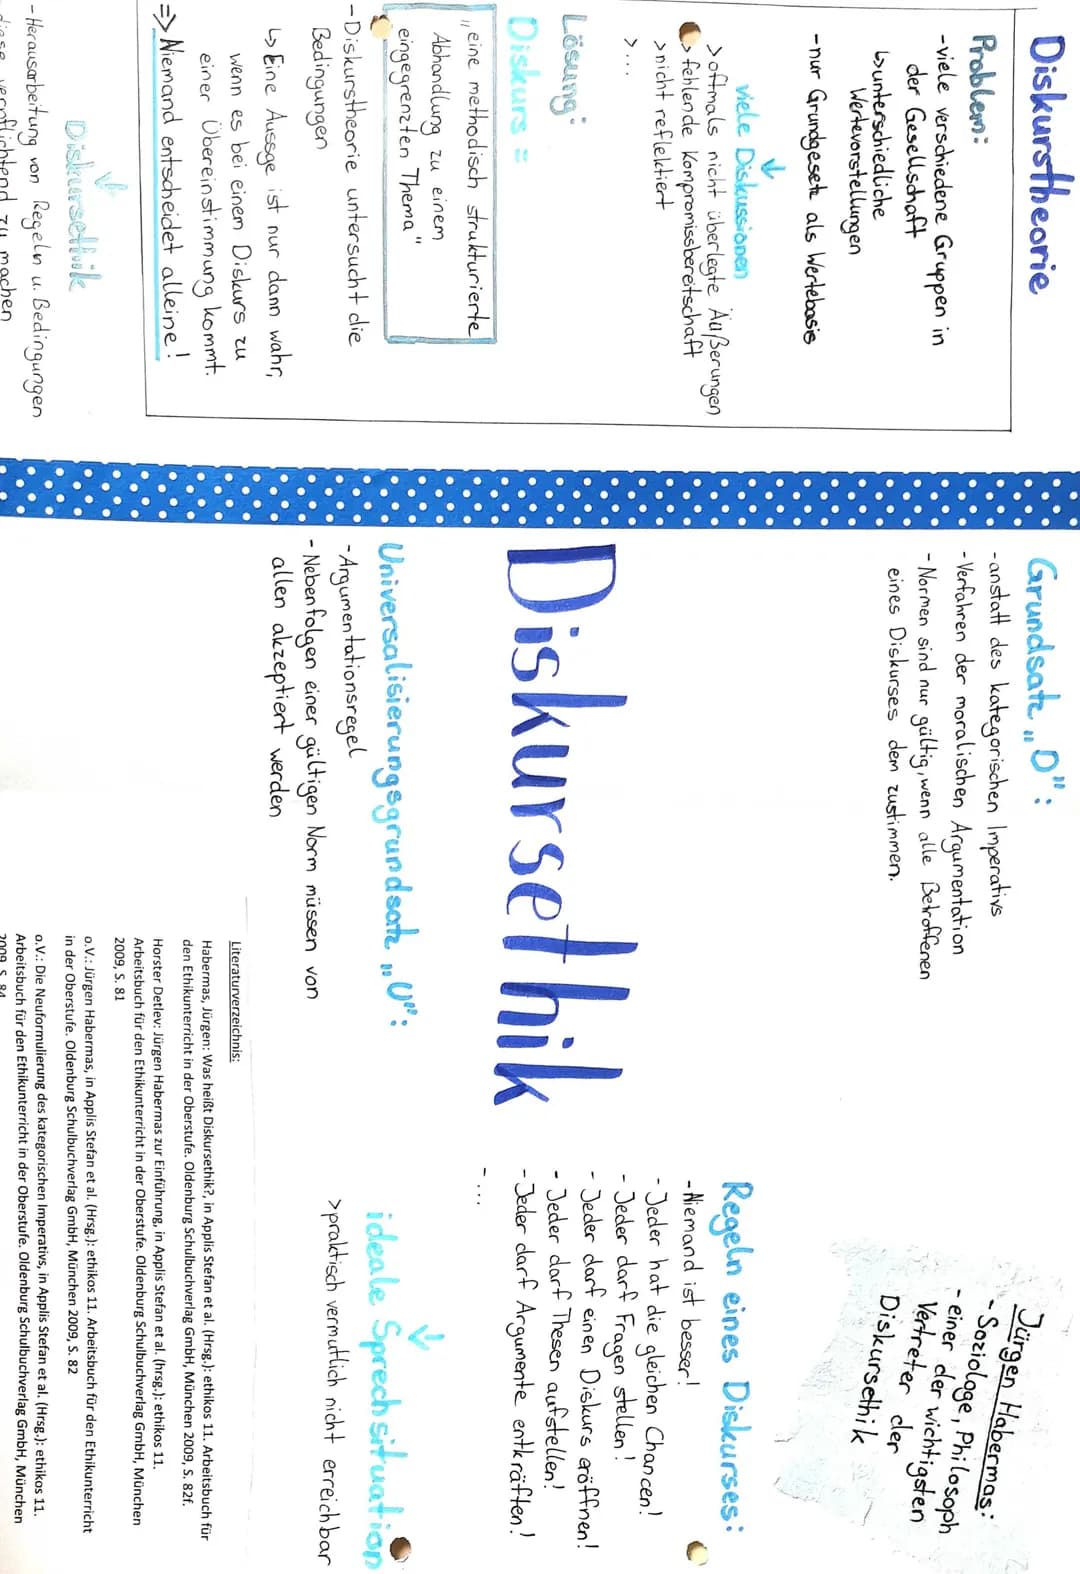 Diskurstheorie
Problem:
- viele verschiedene Gruppen in
der Gesellschaft
↳ unterschiedliche
Wertevorstellungen
- nur Grundgesetz als Wertebasis
↓
viele Diskussionen
> oftmals nicht überlegte Äußerungen
> fehlende Kompromissbereitschaft
> nicht reflektiert
> ...
Lösung:
Diskurs =
„eine methodisch strukturierte
Abhandlung zu einem
eingegrenzten Thema"
- Diskurstheorie untersucht die
Bedingungen
↳ Eine Aussge ist nur dann wahr,
wenn es bei einem Diskurs zu
einer Übereinstimmung kommt.
=> Niemand entscheidet alleine!
↓
Diskursethik
- Herausarbeitung von Regeln u. Bedingungen
diese verpflichtend zu machen
Grundsatz „D":
- anstatt des kategorischen Imperativs
- Verfahren der moralischen Argumentation
- Normen sind nur gültig, wenn alle Betroffenen
eines Diskurses dem zustimmen.
Diskursethik
Universalisierungsgrundsatz „U":
- Argumentationsregel
- Nebenfolgen einer gültigen Norm müssen von
allen akzeptiert werden
Jürgen Habermas:
- Soziologe, Philosoph
- einer der wichtigsten
Vertreter der
Diskursethik
Regeln eines Diskurses:
- Niemand ist besser!
- Jeder hat die gleichen Chancen!
- Jeder darf Fragen stellen!
- Jeder darf einen Diskurs eröffnen!
- Jeder darf Thesen aufstellen!
- Jeder darf Argumente entkräften!
- ...
↓
ideale Sprechsituation
> praktisch vermutlich nicht erreichbar
Literaturverzeichnis:
Habermas, Jürgen: Was heißt Diskursethik?, in Applis Stefan et al. (Hrsg.): ethikos 11. Arbeitsbuch für
den Ethikunterricht in der Oberstufe. Oldenburg Schulbuchverlag GmbH, München 2009, S. 82f.
Horster Detlev: Jürgen Habermas zur Einführung, in Applis Stefan et al. (hrsg.): ethikos 11.
Arbeitsbuch für den Ethikunterricht in der Oberstufe. Oldenburg Schulbuchverlag GmbH, München
2009, S. 81
o.V.: Jürgen Habermas, in Applis Stefan et al. (Hrsg.): ethikos 11. Arbeitsbuch für den Ethikunterricht
in der Oberstufe. Oldenburg Schulbuchverlag GmbH, München 2009, S. 82
o.V.: Die Neuformulierung des kategorischen Imperativs, in Applis Stefan et al. (Hrsg.): ethikos 11.
Arbeitsbuch für den Ethikunterricht in der Oberstufe. Oldenburg Schulbuchverlag GmbH, München
2009, S. 84